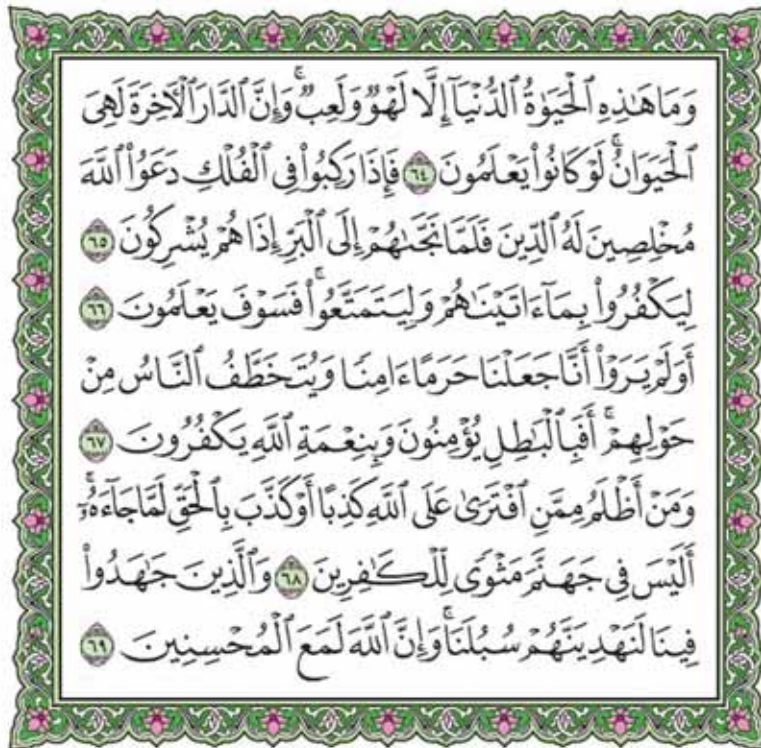 وَمَا هَٰذِهِ ٱلْحَيَوٰةُ ٱلدُّنْيَآ إِلَّا لَهْوٌ وَلَعِبٌ ۚ وَإِنَّ ٱلدَّارَ ٱلْـَٔاخِرَةَ لَهِىَ
ٱلْحَيَوَانُ ۚ لَوْ كَانُوا۟ يَعْلَمُونَ ٦٤ فَإِذَا رَكِبُوا۟ فِى ٱلْفُلْكِ دَعَوُا۟ ٱللَّهَ
مُخْلِصِينَ لَهُ ٱلدِّينَ فَلَمَّا نَجَّىٰهُمْ إِلَى ٱلْبَرِّ إِذَا هُمْ يُشْرِكُونَ ٦٥
لِيَكْفُرُوا۟ بِمَآ ءَاتَيْنَٰهُمْ وَلِيَتَمَتَّعُوا۟ ۖ فَسَوْفَ يَعْلَمُونَ ٦٦
أَوَلَمْ يَرَوْا۟ أَنَّا جَعَلْنَا حَرَمًا ءَامِنًا وَيُتَخَطَّفُ ٱلنَّاسُ مِنْ
حَوْلِهِمْ ۚ أَفَبِٱلْبَٰطِلِ يُؤْمِنُونَ وَبِنِعْمَةِ ٱللَّهِ يَكْفُرُونَ ٦٧
وَمَنْ أَظْلَمُ مِمَّنِ ٱفْتَرَىٰ عَلَى ٱللَّهِ كَذِبًا أَوْ كَذَّبَ بِٱلْحَقِّ لَمَّا جَآءَهُۥٓ ۚ
أَلَيْسَ فِى جَهَنَّمَ مَثْوًى لِّلْكَٰفِرِينَ ٦٨ وَٱلَّذِينَ جَٰهَدُوا۟
فِينَا لَنَهْدِيَنَّهُمْ سُبُلَنَا ۚ وَإِنَّ ٱللَّهَ لَمَعَ ٱلْمُحْسِنِينَ ٦٩